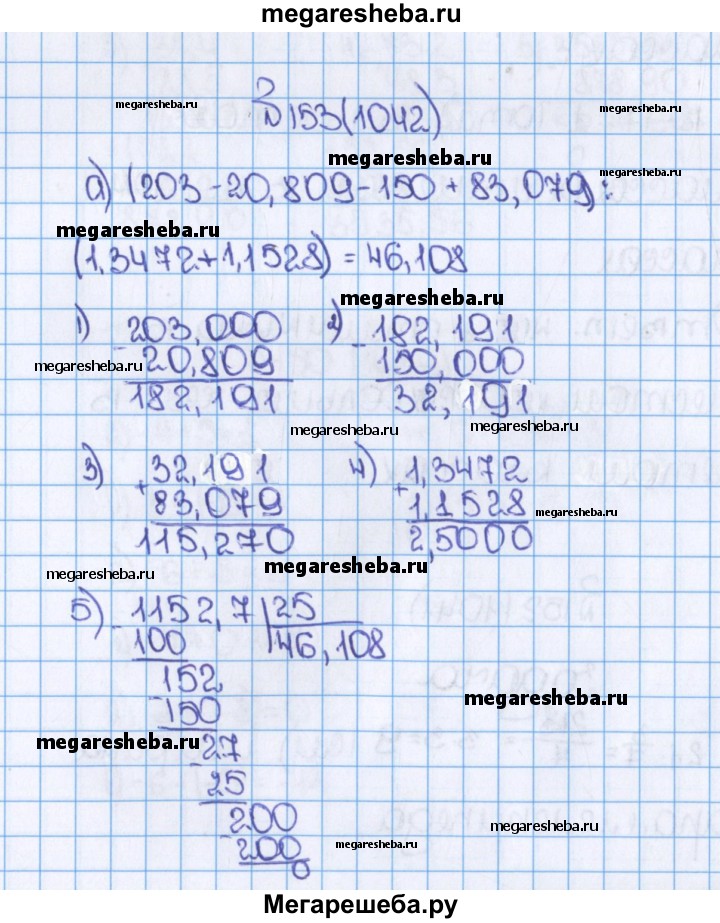 megaresheba.ru
№153(1042)
megaresheba.ru
megaresheba.ru
megaresheba.ru
megaresheba.ru
а) (203-20,809-150+83,079):
megaresheba.ru
(1,3472+1,1528) = 46,108
megaresheba.ru
1) 203,000
- 20,809
182,191
2) 182,191
- 150,000
32,191
megaresheba.ru
megaresheba.ru
megaresheba.ru
3) 32,191
+ 83,079
115,270
4) 1,3472
+ 1,1528
2,5000
megaresheba.ru
megaresheba.ru
megaresheba.ru
5) 1152,7 | 25
- 100 46,108
152
- 150
27
- 25
200
- 200
0
megaresheba.ru
megaresheba.ru
megaresheba.ru
megaresheba.ru
megaresheba.ru
Мегарешеба.ру